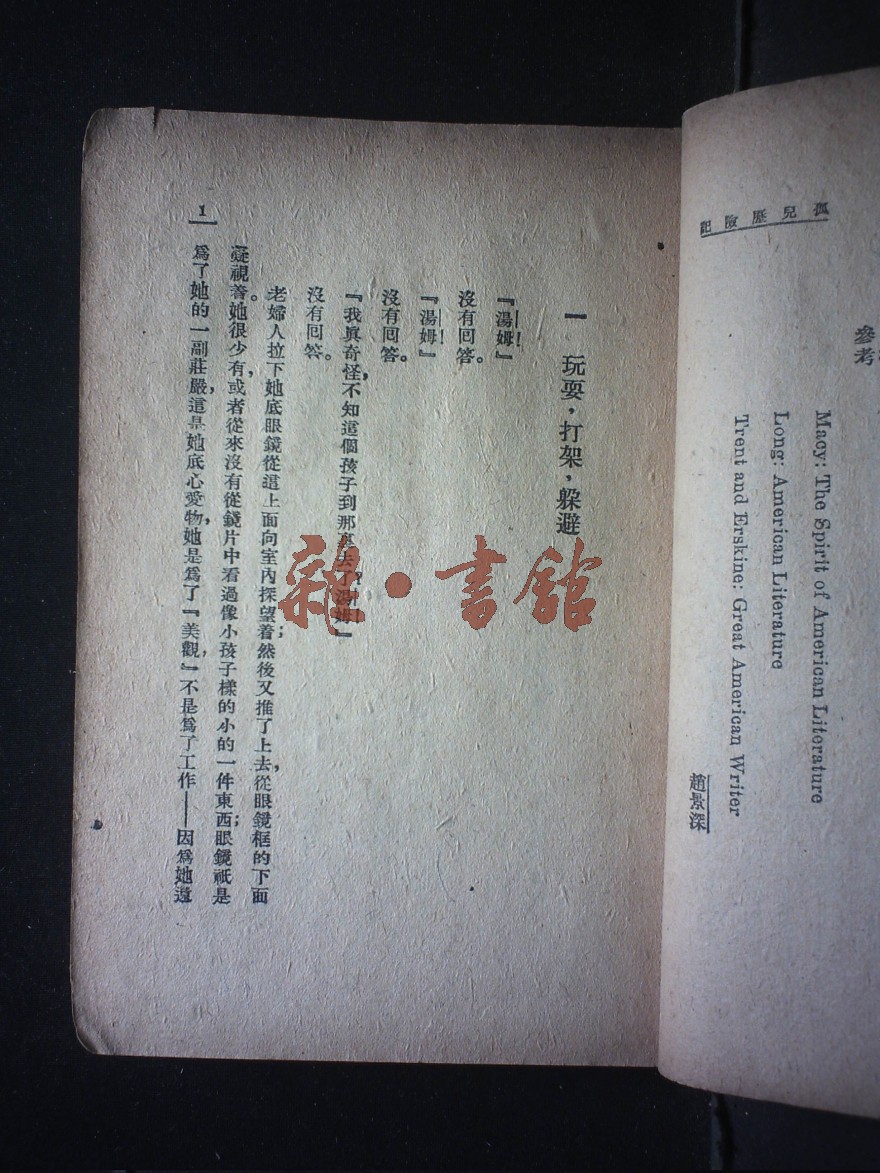 孤兒歷險記
參考
Macy: The Spirit of American Literature
Long: American Literature
Trent and Erskine: Great American Writer
趙景深
一 玩耍，打架，躲避
『湯姆！』
沒有回答。
『湯姆！』
沒有回答。
『我真奇怪，不知這個孩子到那裏去了？湯姆！』
沒有回答。
老婦人拉下她底眼鏡從這上面向室內探望着；然後又推了上去，從眼鏡框的下面
凝視着。她很少有，或者從來沒有從鏡片中看過像小孩子樣的小的一件東西；眼鏡祇是
爲了她的一副莊嚴，這是她底心愛物，她是爲了『美觀』，不是爲了工作——因爲她還
1
雜·書館